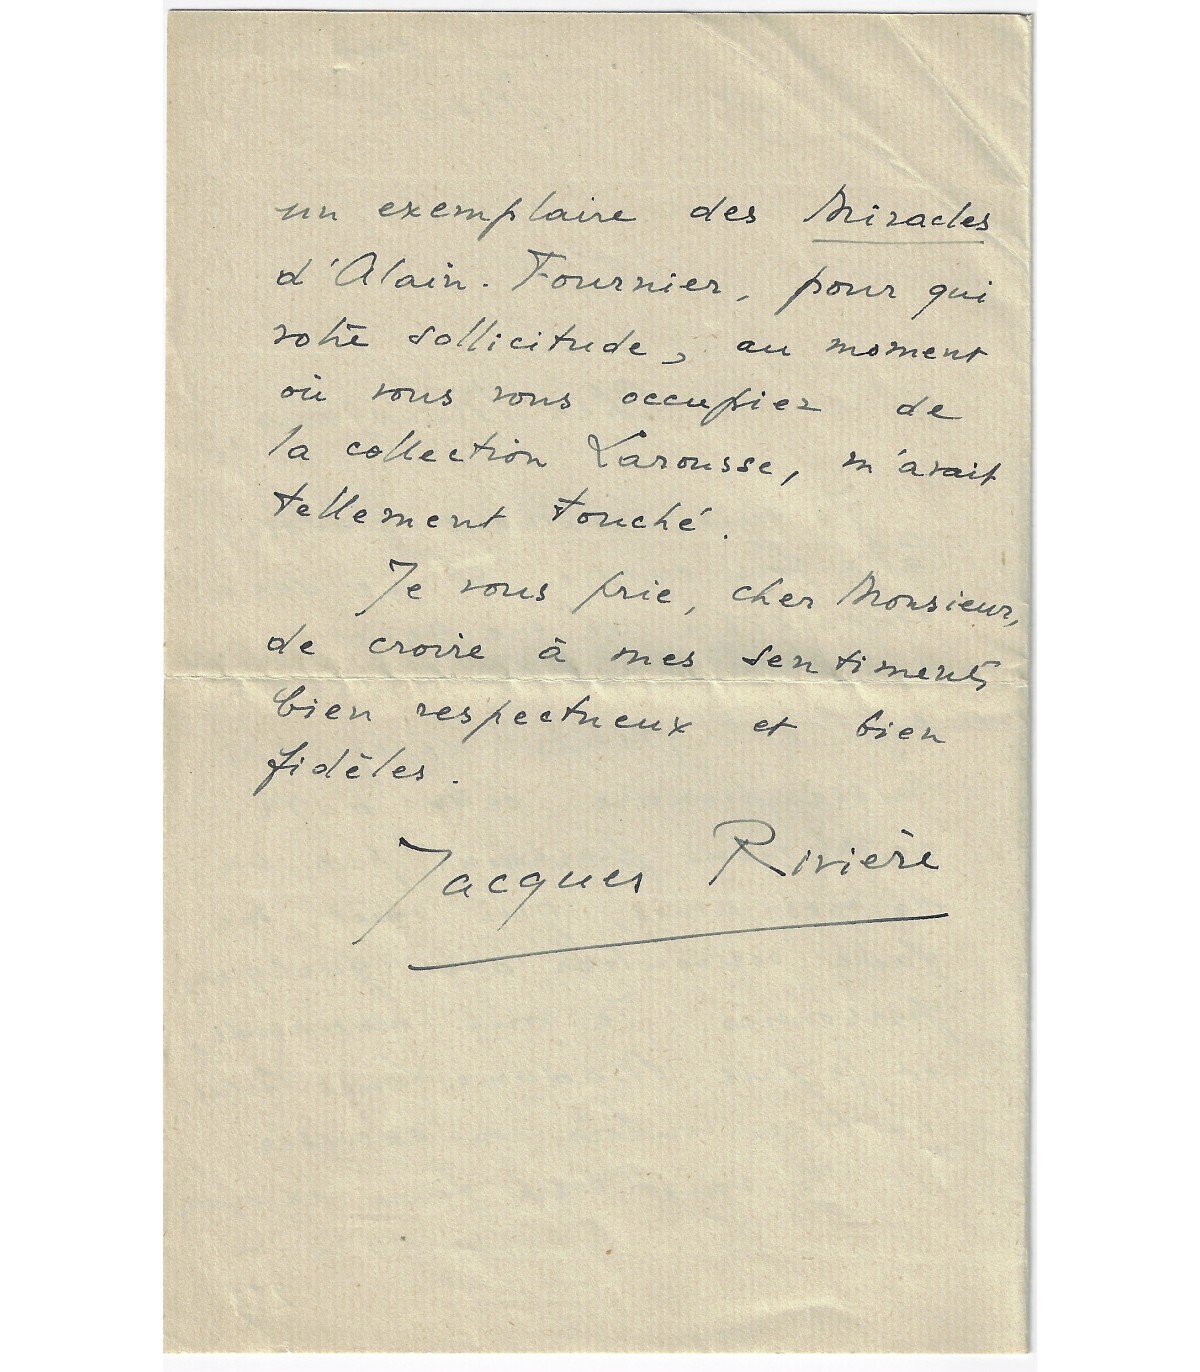 un exemplaire des Miracles
d'Alain-Fournier, pour qui
votre sollicitude, au moment
où vous vous occupiez de
la collection Larousse, m'avait
tellement touché.
Je vous prie, cher Monsieur,
de croire à mes sentiments
bien respectueux et bien
fidèles.
Jacques Rivière